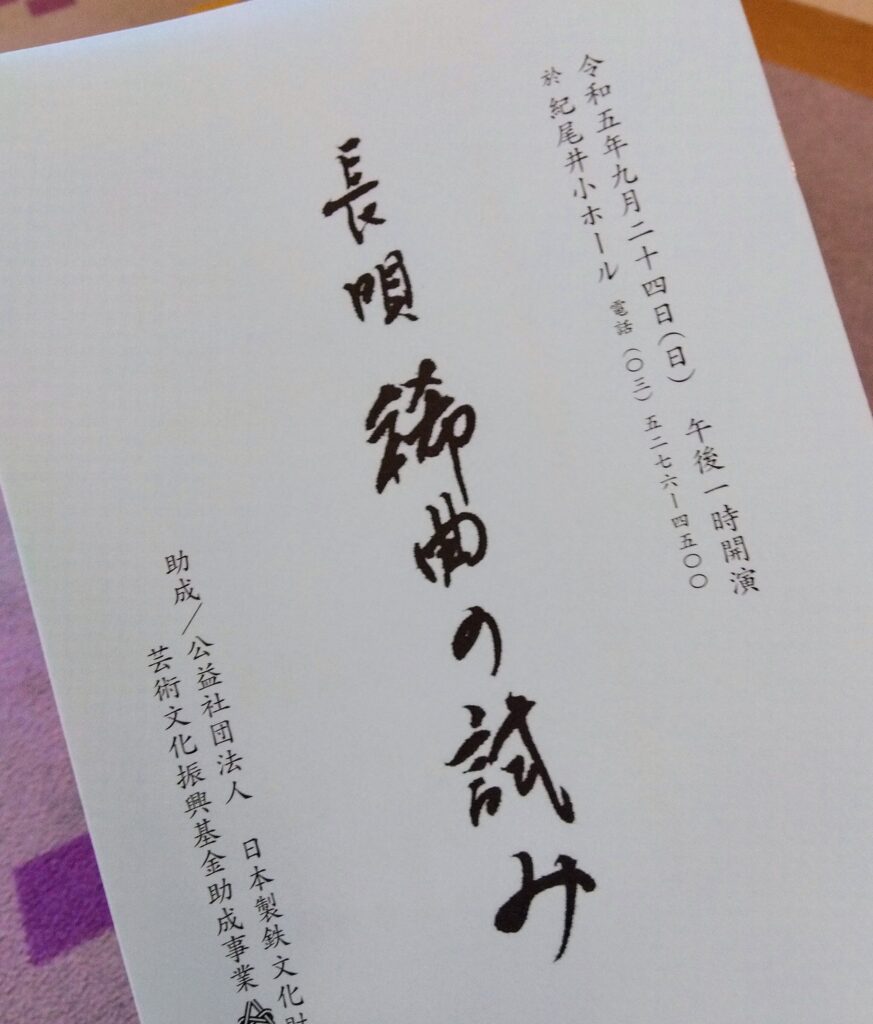 令和五年九月二十四日(日) 午後一時開演
於 紀尾井小ホール 電話(〇三)五二七六ー四五〇〇
長唄 稀曲の試み
助成/公益社団法人 日本製鉄文化財
芸術文化振興基金助成事業